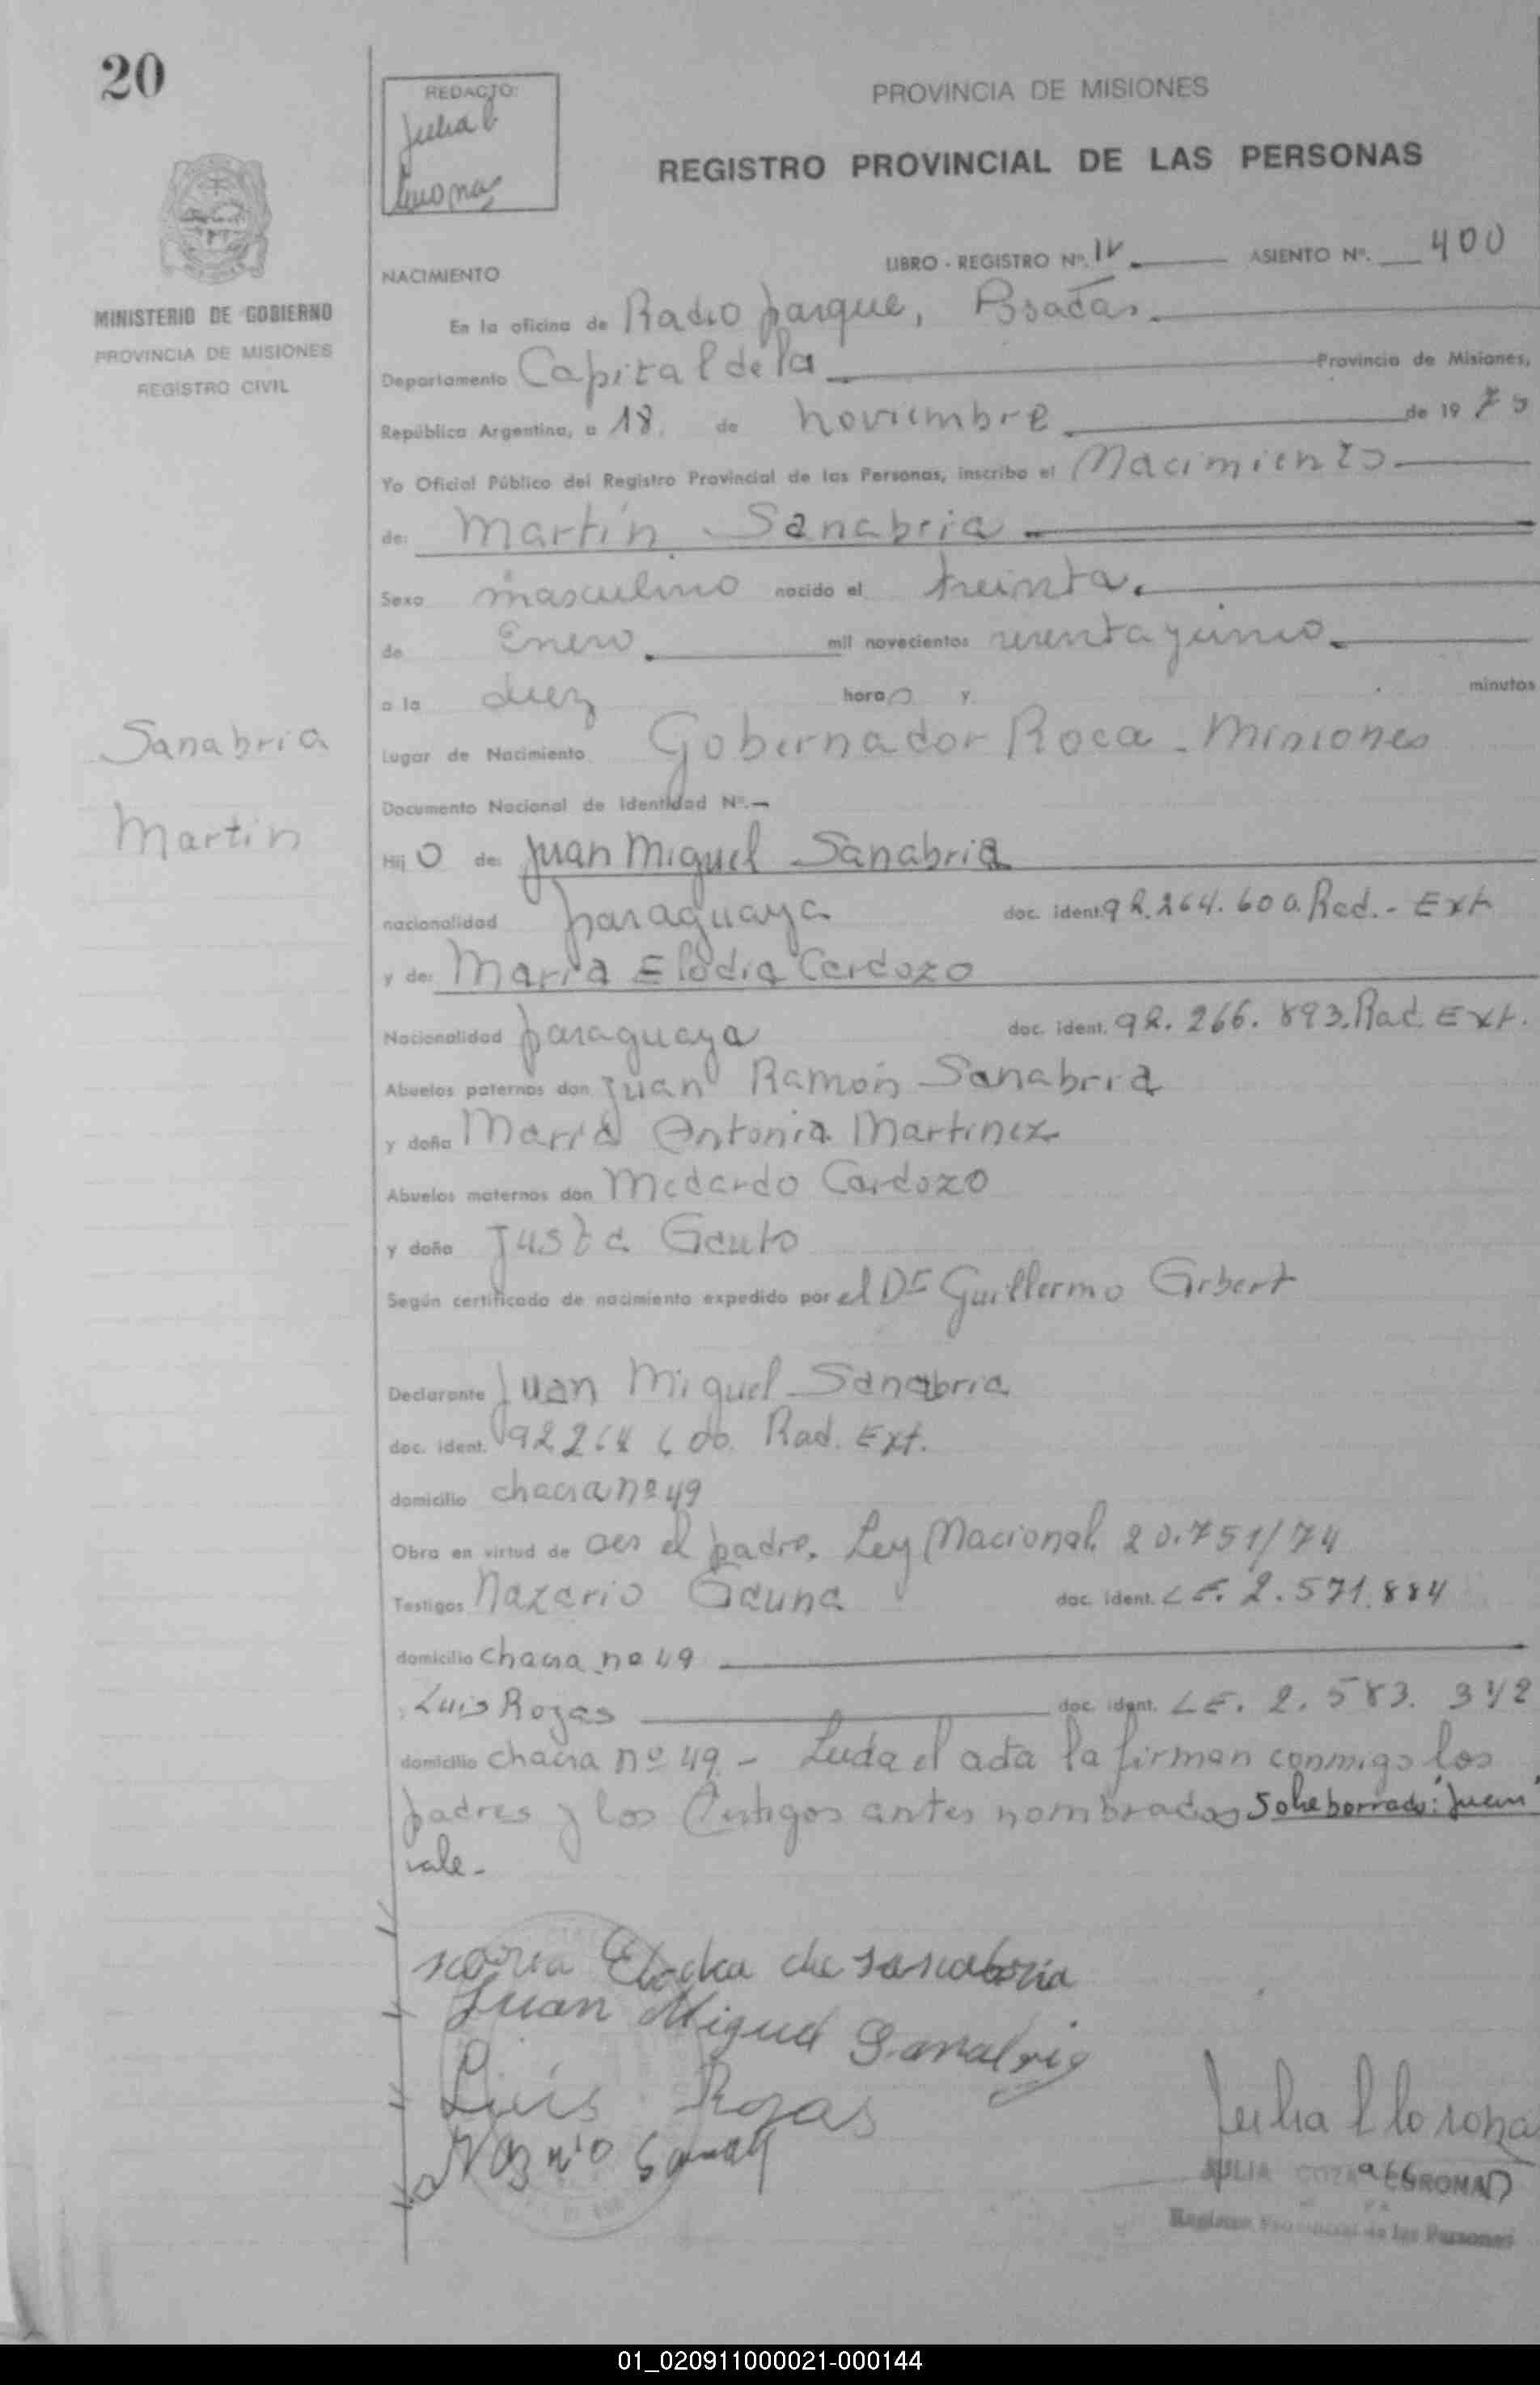 20
REDACTO:
Julia C.
PROVINCIA DE MISIONES
REGISTRO PROVINCIAL DE LAS PERSONAS
NACIMIENTO
LIBRO - REGISTRO Nº. IV ASIENTO Nº. 400
MINISTERIO DE GOBIERNO
PROVINCIA DE MISIONES
REGISTRO CIVIL
En la oficina de Radio parque, Posadas.
Departamento Capital de la Provincia de Misiones,
República Argentina, a 18 de noviembre de 19
Yo Oficial Público del Registro Provincial de las Personas, inscribo el Nacimiento
de: Martín Sanabria
Sexo masculino nacido el treinta.
de Enero. mil novecientos
a la diez horas y minutos
Sanabria
Martin
Lugar de Nacimiento Gobernador Roca - Misiones
Documento Nacional de Identidad Nº. —
Hijo de: Juan Miguel Sanabria
nacionalidad paraguaya doc. ident. 92.264.600. Rad. - Ext
y de: María Elodia Cardozo
Nacionalidad paraguaya doc. ident. 92.266.893. Rad. Ext.
Abuelos paternos don Juan Ramón Sanabria
y doña María Antonia Martinez
Abuelos maternos don Medardo Cardozo
y doña Justa Gauto
Según certificado de nacimiento expedido por el Dr Guillermo
Declarante Juan Miguel Sanabria
doc. ident. 92 264 600. Rad. Ext.
domicilio chacra nº 49
Obra en virtud de ser el padre. Ley Nacional. 20.751/74
Testigos Nazario Gauna doc. ident. L E. 2.571.884
domicilio chacra nº 49
Luis Rojas doc. ident. LE. 2.583.342
domicilio chacra nº 49 - Leida el acta la firman conmigo los
padres y los testigos antes nombrados Sobreborrado: Juan
vale.-
Maria Elodia de sanabria
Juan Miguel Sanabria
Luis Rojas
JULIA
Registro Provincial de las Personas
01_020911000021-000144